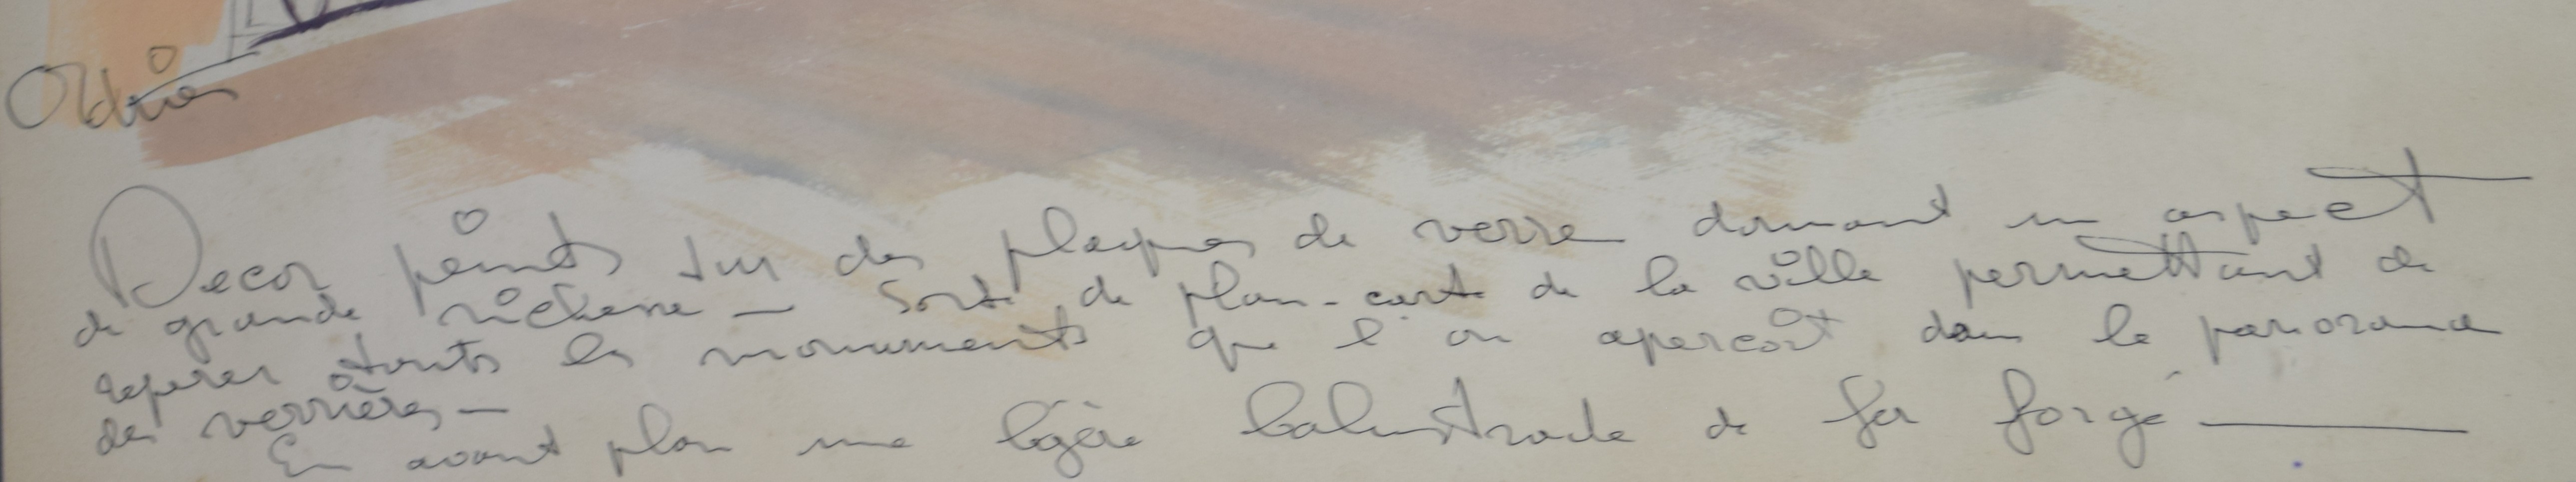 Oldrien
Decor peints sur des plaques de verre donnant un aspect
de grande richesse - Sorte de plan-carte de la ville permettant de
reperer touts les monuments que l'on aperçoit dans le panorama
des verrières -
En avant plan une légère balustrade de fer forgé